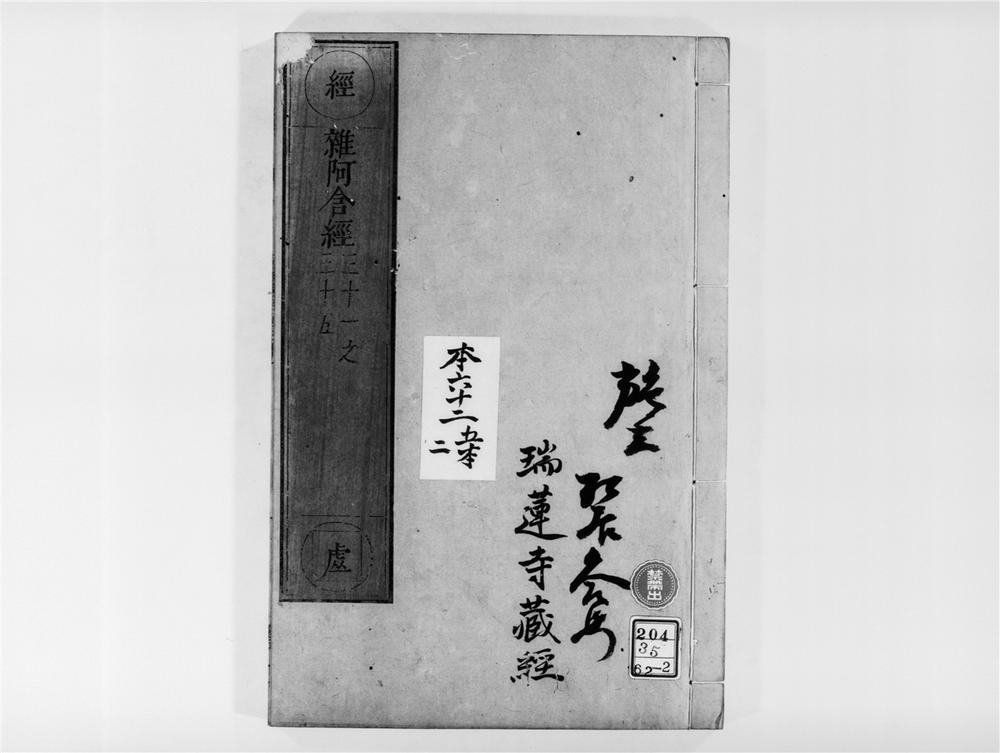 經
雜阿含經
三十一之
三十五
處
本六十二
五本
二
瑞蓮寺藏經
禁帶出
204
35
62-2